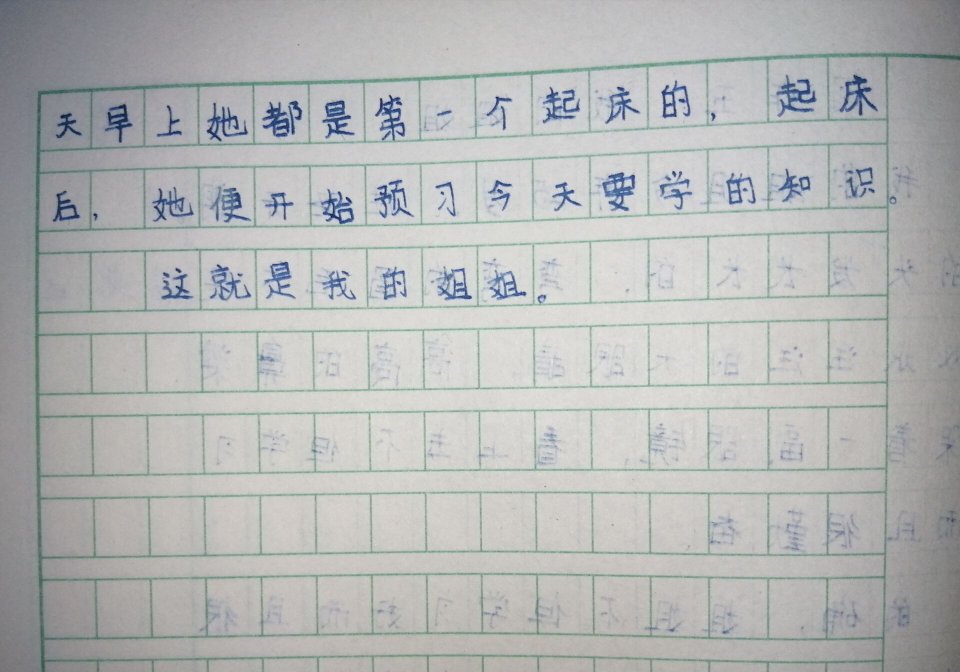 天早上她都是第一个起床的，起床
后，她便开始预习今天要学的知识。
这就是我的姐姐。